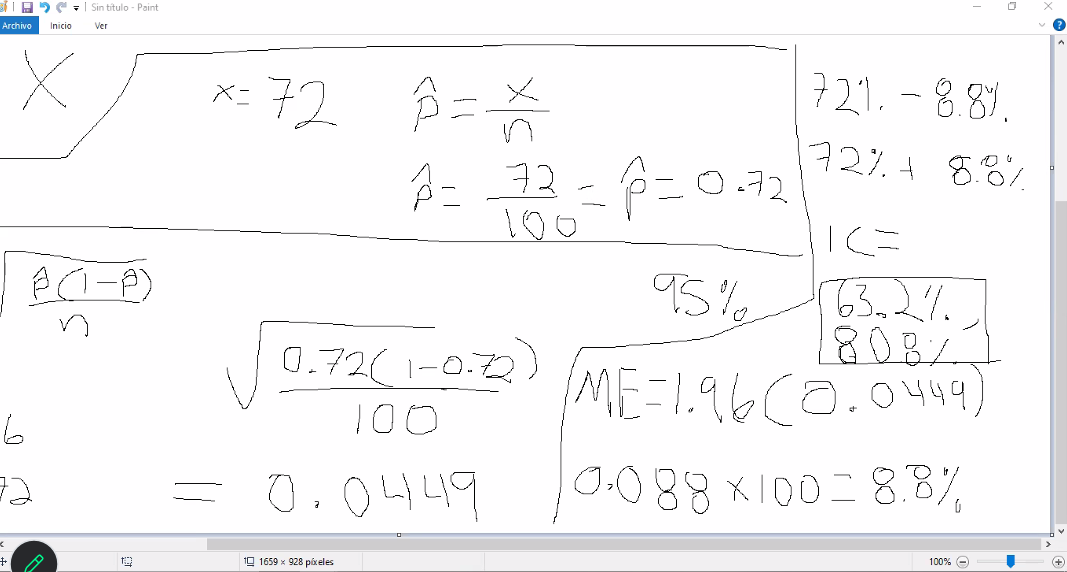 Sin título - Paint
Archivo Inicio Ver
X
x= 72
p̂ = x/n
p̂ = 72/100 = p̂ = 0.72
72% - 8.8%
72% + 8.8%
IC=
63.2%,
80.8%
p̂(1-p̂)
n
95%
√0.72(1-0.72)
100
= 0.0449
ME=1.96(0.0449)
0.088 x 100 = 8.8%
6
72
1659 × 928 píxeles
100%